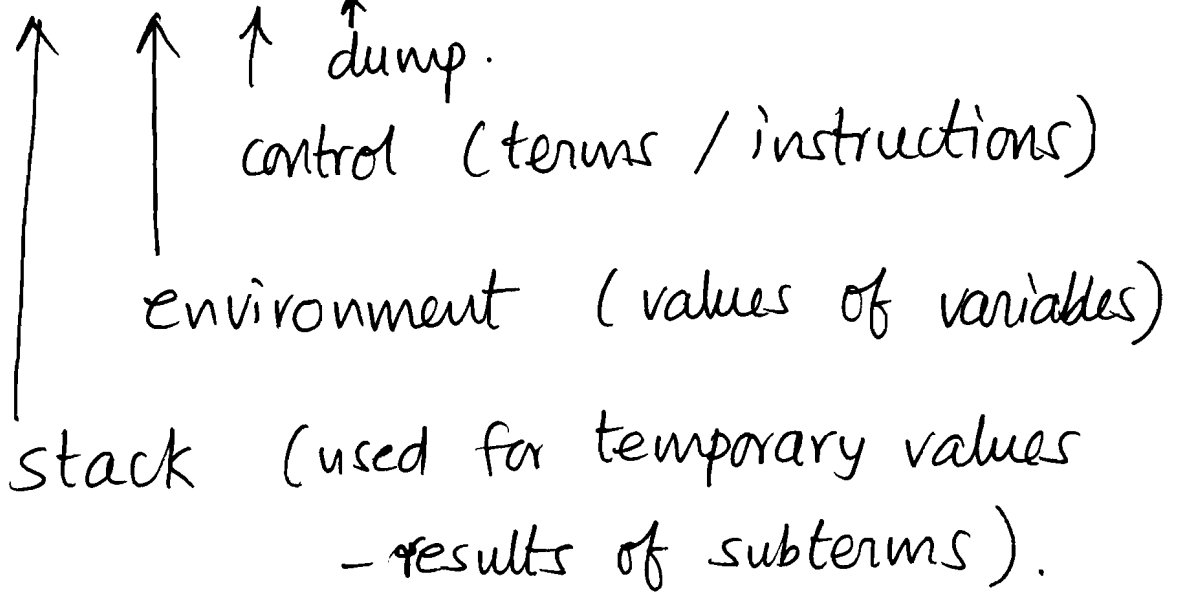 dump.
control (terms / instructions)
environment (values of variables)
stack (used for temporary values
- results of subterms).